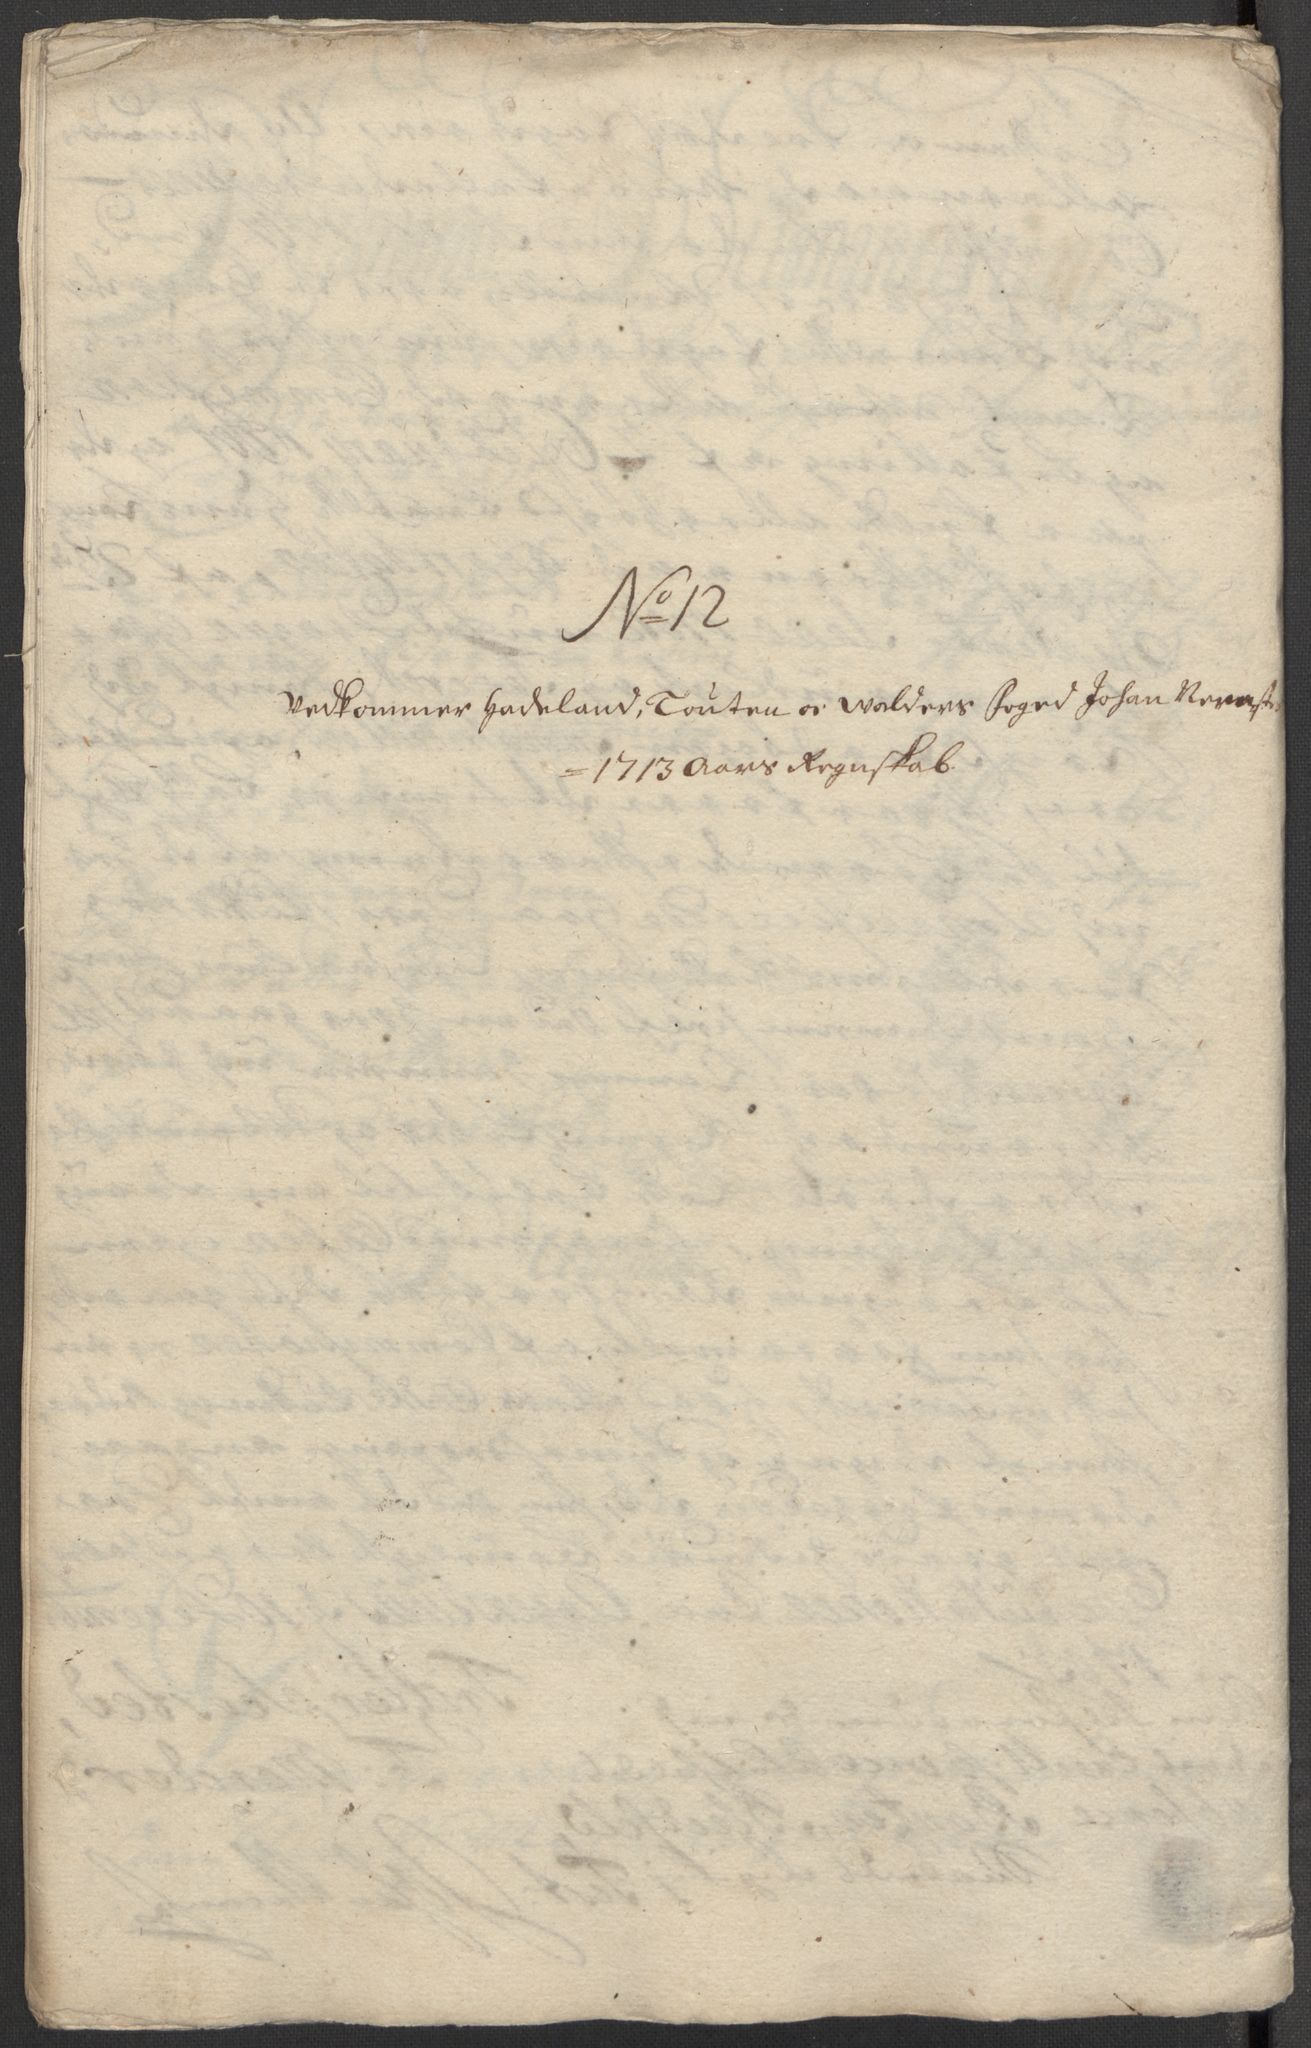 No 12
Vedkommer Hadeland, Touten oc Walders Foged Johan
= 1713 Aars Regnskab